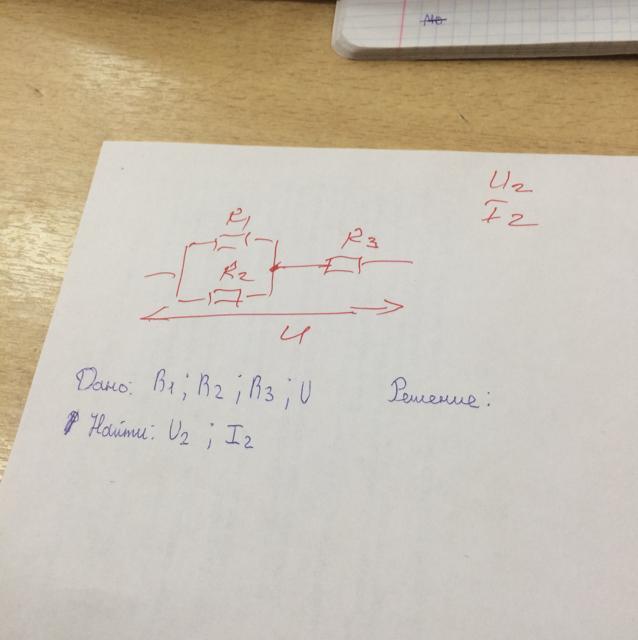 No
U2
I2
R1
R3
R2
U
Дано: R1 ; R2 ; R3 ; U
Решение:
Найти: U2 ; I2